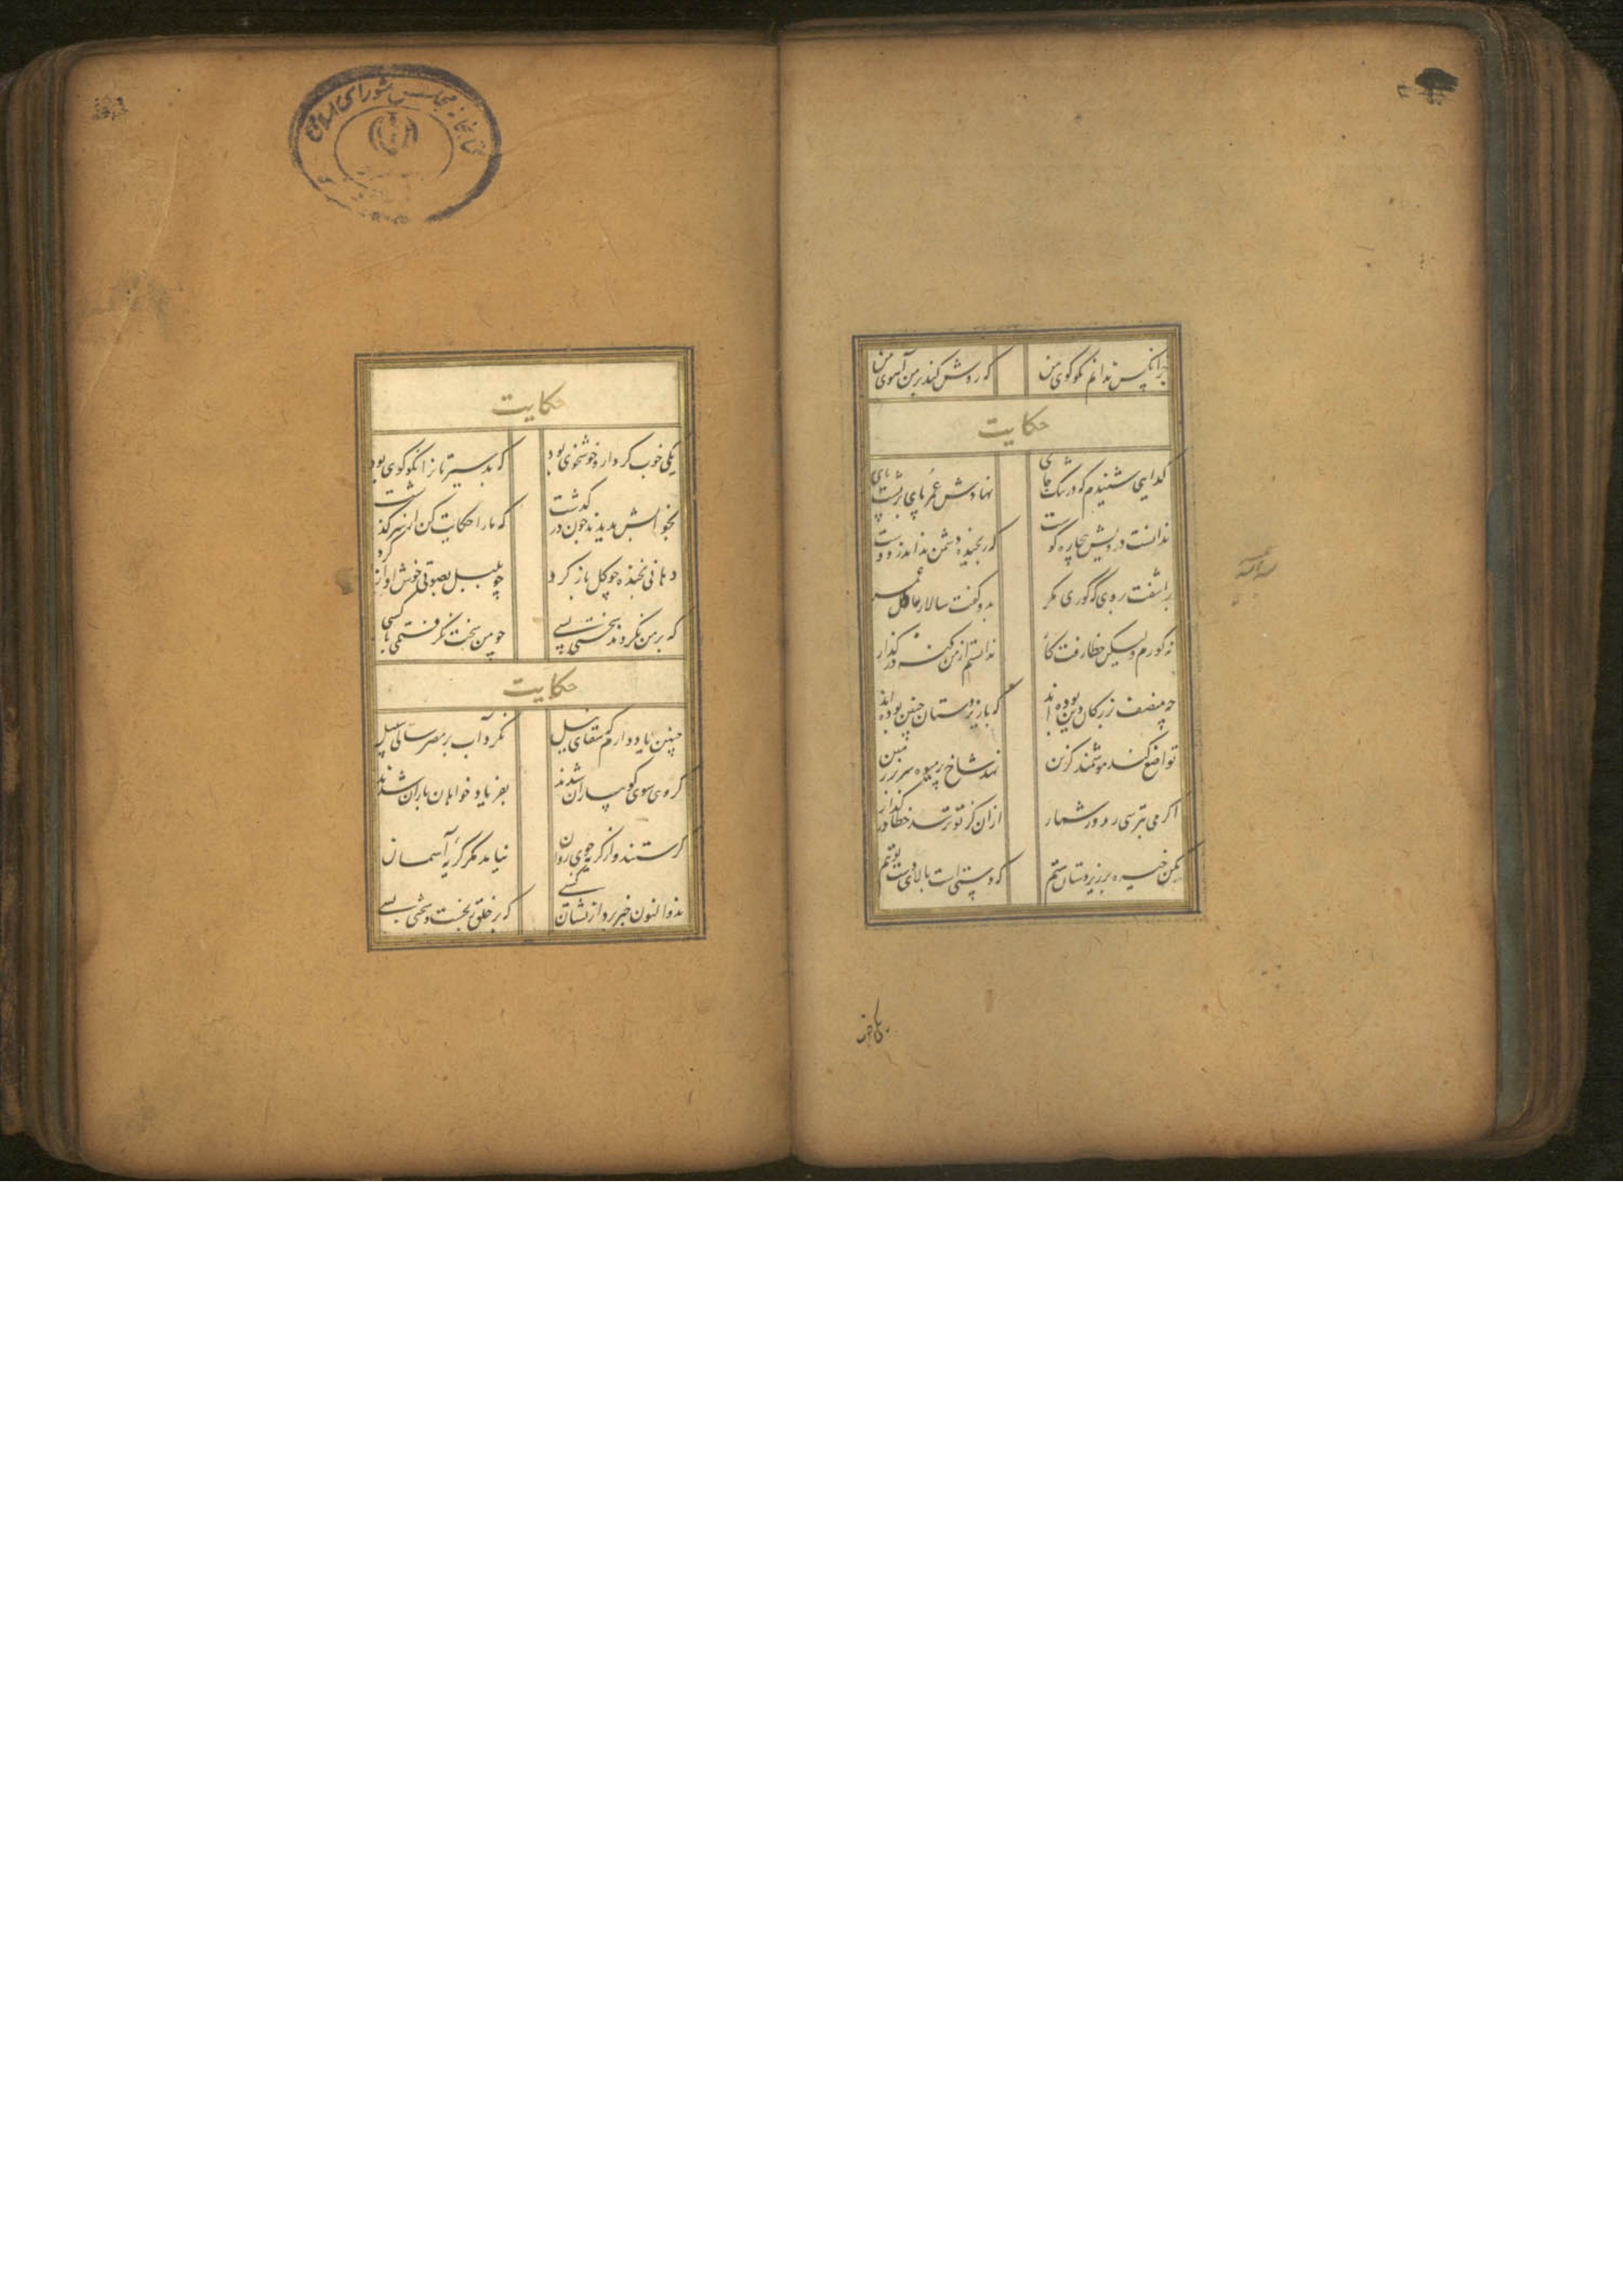 جز آنکس ندانم نکوگوی من که روشن کند بر من آهوی من
حکایت
گدایی شنیدم که در تنگ جای نهادش عمر پای بر پشت پای
ندانست درویش بیچاره کوست که رنجیده دشمن نداند ز دوست
برآشفت بر وی که کوری مگر بدو گفت سالار عادل عمر
نه کورم ولیکن خطا رفت کار ندانستم از من گنه در گذار
چه منصف بزرگان دین بوده‌اند که با زیردستان چنین بوده‌اند
تواضع کند هوشمند گزین نهد شاخ پر میوه سر بر زمین
اگر می بترسی ز روز شمار از آن کز تو ترسد خطا در گذار
مکن خیره بر زیردستان ستم که دستیست بالای دست تو هم
حکایت
یکی خوب کردار و خوشخوی بود که بد سیرتان را نکوگوی بود
بخوابش بدیدند چون درگذشت که ما را حکایت کن از سرگذشت
دهانی بخنده چو گل باز کرد چو بلبل بصوتی خوش آواز کرد
که بر من نکردند سختی بسی چو من سخت نگرفتمی با کسی
حکایت
چنین یاد دارم که سقای نیل نکرد آب بر مصر سالی سبیل
گروهی سوی کوهساران شدند بفریاد خواهان باران شدند
گرستند و از گریه جوی روان نیامد مگر گریه آسمان
بذوالنون خبر برد ازیشان کسی که بر خلق رنجست و سختی بسی
کتابخانه مجلس شورای اسلامی